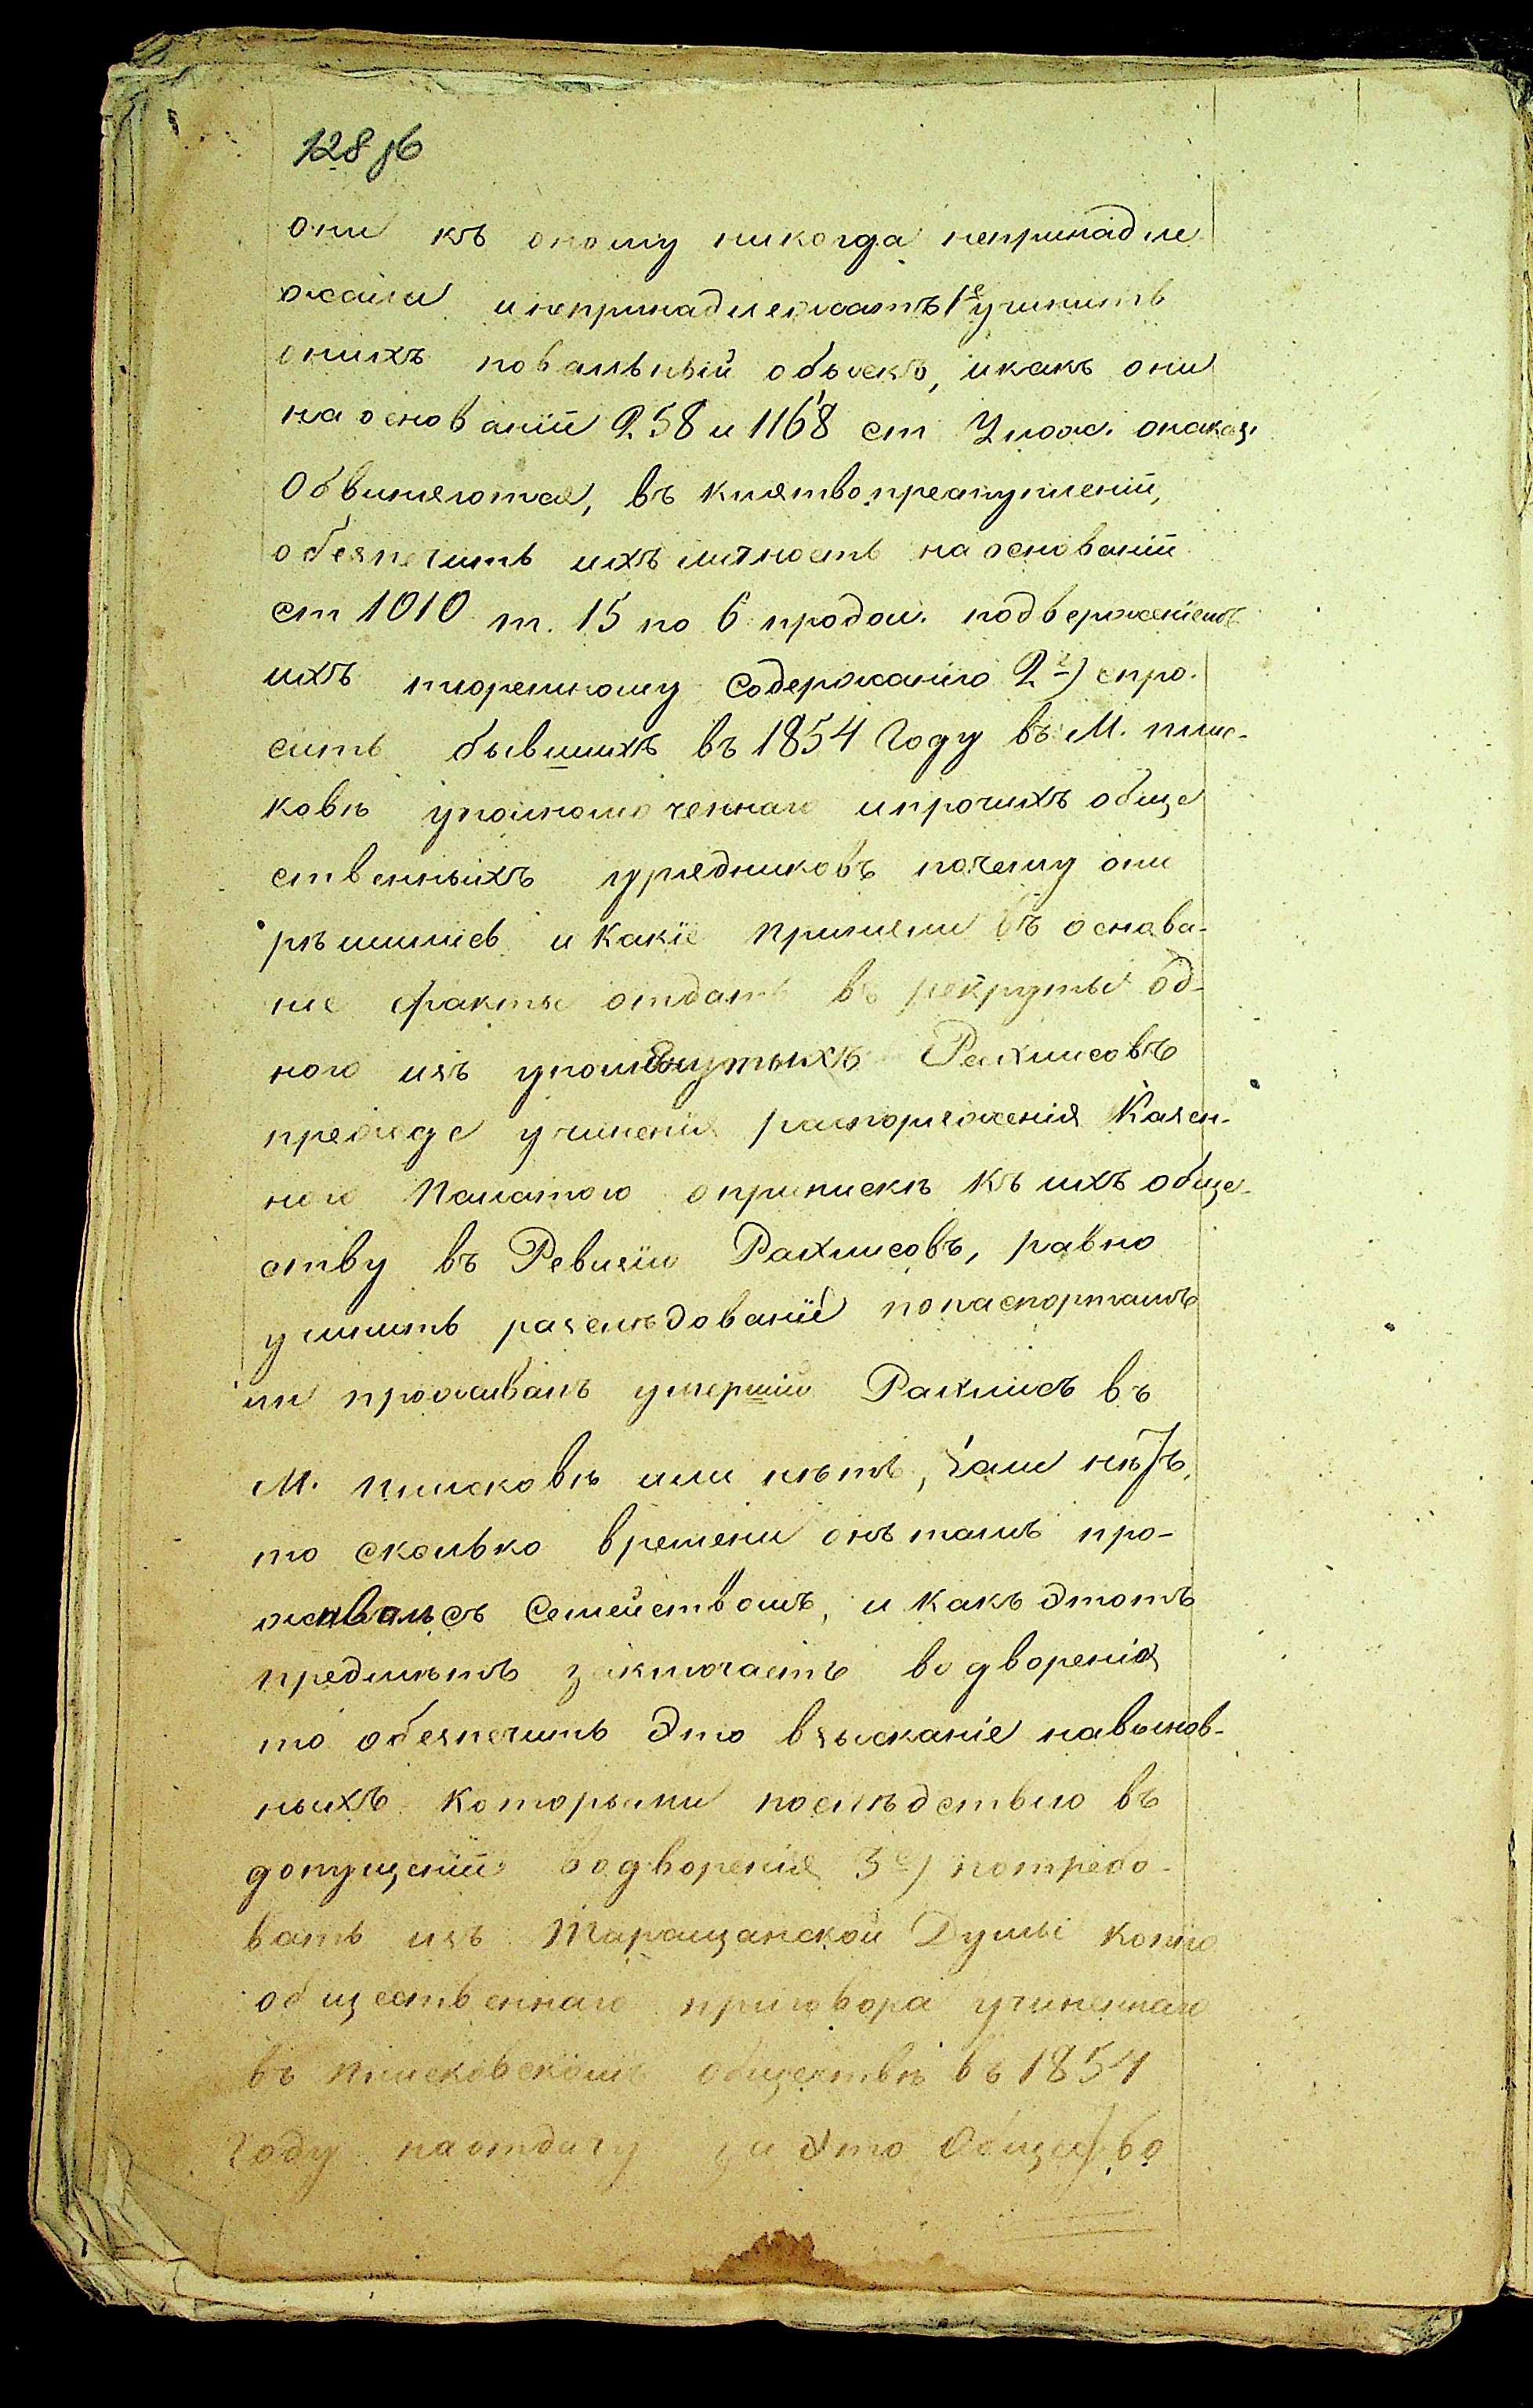 128 об
они къ оному никогда непринадле
жали и непринадлежатъ 1е учинить
онихъ повальный обыскъ, и какъ они
на основаніи 258 и 1168 ст Улож. о наказ.
Обвиняются, въ клятвопреступленіи,
обезпечить ихъ личность на основаніи
ст 1010 т. 15 по 6 продол. подверженіемъ
ихъ тюремному содержанію 2е) спро-
сить бывшихъ въ 1854 Году въ М. пяти-
ковѣ уполномоченнаго и прочихъ обще
ственныхъ урядниковъ почему они
рѣшились и какіе приняли въ основа-
ніе факты отдать въ рекруты од-
ного изъ упомянутыхъ Рахлисовъ
прежде учиненія распоряженія Казен-
ною Палатою о припискѣ къ ихъ обще-
ству въ Ревизію Рахлисовъ, равно
учинить разслѣдованіе по паспортамъ
ли проживалъ умершій Рахлисъ въ
М. Пятиковѣ или нѣтъ, Ежели нѣтъ,
то сколько времени онъ тамъ про-
живалъ съ Семействомъ, и какъ этотъ
предметъ заключаетъ водворенія
то обезпечить это взысканіе на винов-
ныхъ которыми послѣдствію въ
допущеніи водворенія 3е) потребо-
вать изъ Таращанской Думы копію
общественнаго приговора учиненнаго
въ пятиковскомъ обществѣ въ 1854
Году на отдачу за это Общество